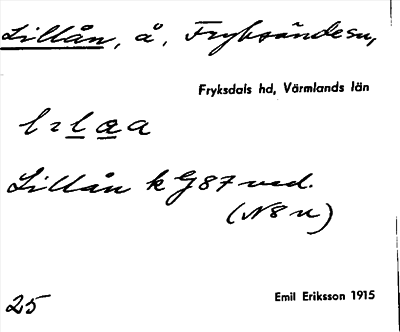 Lillån, å, Fryksände sn,
Fryksdals hd, Värmlands län
Lillån k G 87 ved.
(N8u)
25
Emil Eriksson 1915